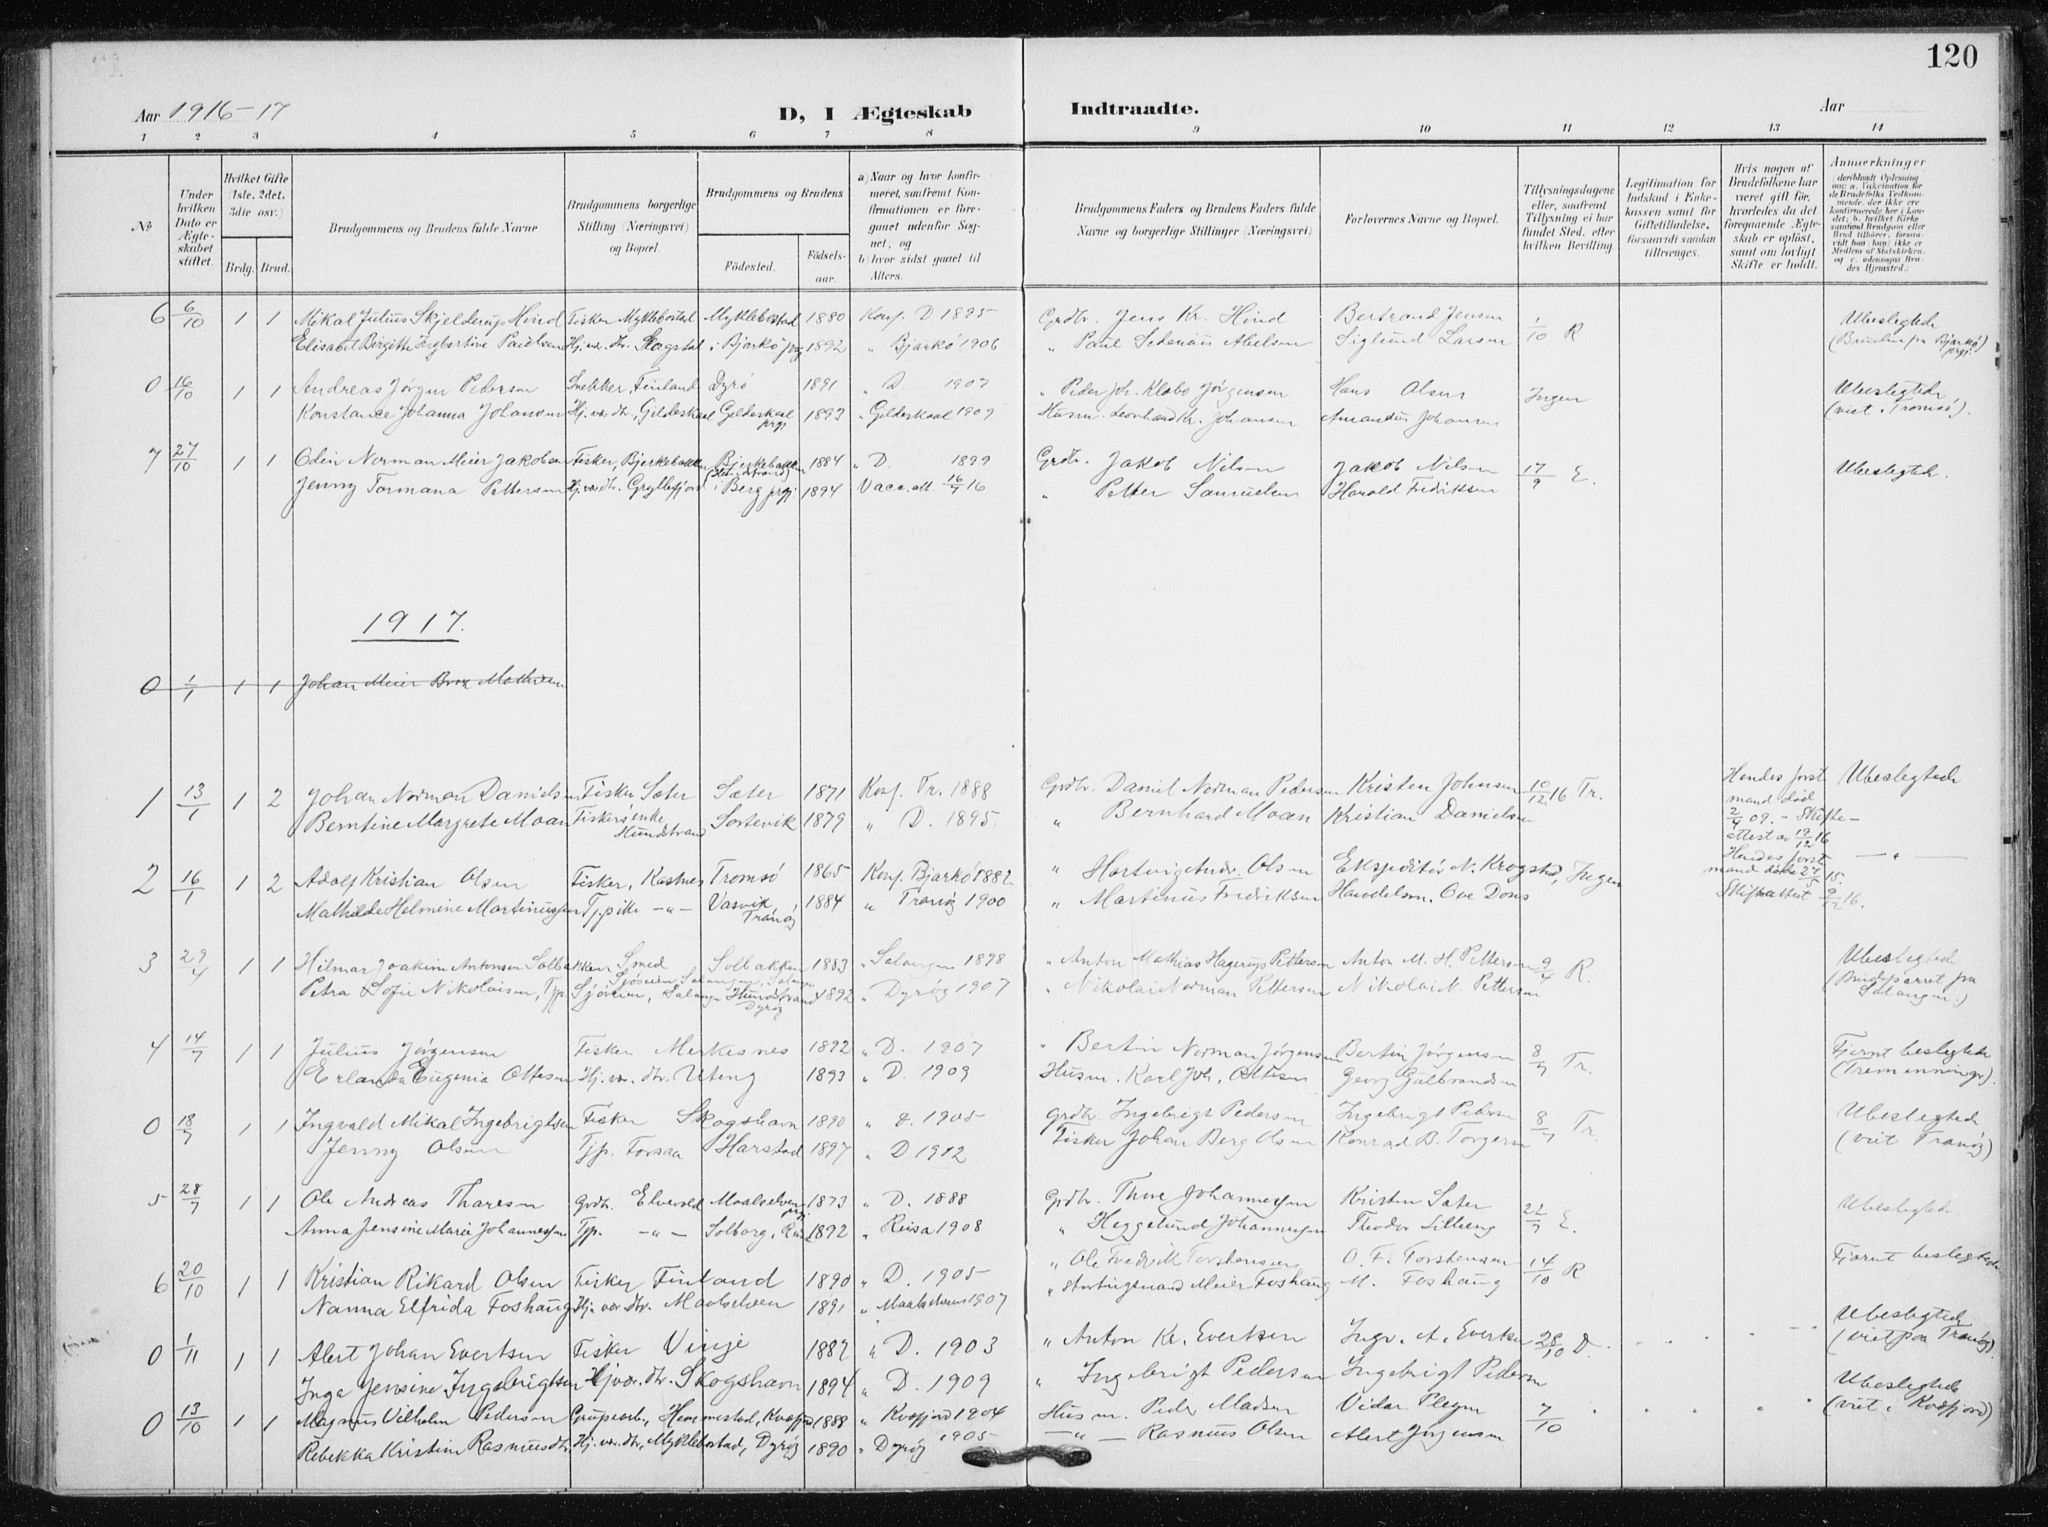 120
Aar 1916-17
D, I Ægteskab Indtraadte.
Aar
1 2 3 4 5 6 7 8 9 10 11 12 13 14
No
Under hvilken Dato er Ægteskabet stiftet.
Hvilket Gifte (1ste, 2det, 3die osv.)
Brdg. Brud.
Brudgommens og Brudens fulde Navne
Brudgommens borgerlige Stilling (Næringsvei) og Bopæl.
Brudgommens og Brudens
Fødested.
Fødselsaar.
a) Naar og hvor konfirmeret, saafremt Konfirmationen er foregaaet udenfor Sognet, og
b) hvor sidst gaaet til Alters.
Brudgommens Faders og Brudens Faders fulde Navne og borgerlige Stillinger (Næringsvei)
Forlovernes Navne og Bopæl.
Tillysningsdagene eller, saafremt Tillysning ei har fundet Sted, efter hvilken Bevilling.
Legitimation for Indskud i Enkekassen samt for Giftetilladelse, forsaavidt saadan tiltrænges.
Hvis nogen af Brudefolkene har været gift før, hvorledes da det foregaaende Ægteskab er opløst, samt om lovligt Skifte er holdt.
Anmærkninger
(deriblandt Oplysning om: a. Vakcination for de Brudefolks Vedkommende, der ikke ere konfirmerede her i Landet; b. hvilket Kirkesamfund Brudgom eller Brud tilhører, forsaavidt han (hun) ikke er Medlem af Statskirken, og c. udensogns Brudes Hjemsted.)
6 6/10 1 1 Mikal Julius Skjelderup Hind Fisker Myklebostad Myklebostad 1880 Konf. D 1895 Grdbr. Jens Kr. Hind Bertrand Jensen 1/10 R Ubeslegtede
Elisabet Birgitte Ingbertine Paulsen Hj.vær. dtr. Skogstad i Bjarkø prgj 1892 " Bjarkø 1906 " Paul Sedenius Abelsen Siglund Larsen (Bruden fra Bjarkø prgj.)
0 16/10 1 1 Andreas Jørgen Pedersen Snekker, Finland Dyrø 1891 " D. 1907 " Peder Joh. Klabo Jørgensen Hans Olsen Ingen Ubeslegtede
Konstance Johanna Johansen Hj. vær. dtr, Gildeskaal Gildeskaal prgj 1893 " Gildeskaal 1909 Husm. Leonhard Kr. Johansen Amandus Johansen (viet i Tromsø).
7 27/10 1 1 Odin Norman Meier Jakobsen Fisker, Bjerkebakken Bjerkebakken 1884 " D. 1899 Grdbr. Jakob Nilsen Jakob Nilsen 17/9 E. Ubeslegtede.
Jenny Tormana Pettersen Hj. vær dtr. Gryllefjord i Berg prgj. 1894 Vacc. att. 16/9 16 " Petter Samuelsen Harald Fredriksen
1917.
0 1/1 1 1 Johan Meier Brox Mathisen
1 13/1 1 2 Johan Norman Danielsen Fisker Sæter Sæter 1871 Konf. Tr. 1888 Grdbr. Daniel Norman Pedersen Kristen Johnsen 10/12 16 Tr. Hendes første mand død 2/4 09. - Skifteattest av 19/12 16 Ubeslegtede
Berntine Margrete Moan Fiskerenke Hundstrand Sørtevik 1879 " D. 1895. " Bernhard Moan Kristian Danielsen
2 16/1 1 2 Adolf Kristian Olsen Fisker, Kastnes Tromsø 1865 Konf. Bjarkø 1882 " Hartvig Andr. Olsen Ekspeditør N. Krogstad, Ingen Hendes første mand døde 24/5 15. Skifteattest 9/12 16. - " -
Mathilde Helmine Martinussen Tj.pike - " - Vasvik, Tranøy 1884 " Tranøy 1900 " Martinus Fredriksen Handelsm. Ove Dons
3 29/4 1 1 Hilmar Joakim Antonsen Solbakken Smed Sjøveien, Salangen Solbakken Salangen 1883 " Salangen 1898 " Anton Mathias Hagerup Pettersen Anton M. H. Pettersen 9/4 R. Ubeslegtede
Petra Sofie Nikolaisen, Tjp. Sjøveien, Salangen Hundstrand Dyrøy 1892 " Dyrøy 1907 " Nikolai Norman Pettersen Nikolai N. Pettersen (Brudeparret fra Salangen.)
4 14/7 1 1 Julius Jørgensen Fisker Merkesnes 1892 " D. 1907 " Bertin Norman Jørgensen Bertin Jørgensen 8/7 Tr. Fjernt beslegtede
Erlanda Eugenia Ottesen Hj. vær. dtr. Uteng 1893 " D. 1909 Husm. Karl Joh. Ottesen Georg Gulbrandsen (Tremenninger).
0 18/7 1 1 Ingvald Mikal Ingebrigtsen Fisker Skogshavn 1890 " D. 1905 Grdbr. Ingebrigt Pedersen Ingebrigt Pedersen 8/7 Tr. Ubeslegtede
Jenny Olsen Tjp. Forsaa Harstad 1897 " D 1912 Fisker Johan Berg Olsen Konrad B. Torgersen (viet Tranøy)
5 28/7 1 1 Ole Andreas Tharesen Grdbr. Elvevold Maalselven prgj. 1873 " D. 1888 Grdbr. Thore Johannessen Kristen Sæter 22/7 E. Ubeslegtede.
Anna Jensine Marie Johannessen Tjp. - " - Solborg, 1892 " Reisa 1908 " Heggelund Johannessen Theodor Lilleng
6 20/10 1 1 Kristian Rikard Olsen Fisker Finland 1890 " D. 1905 " Ole Fredrik Torstensen O. F. Torstensen 14/10 R Fjernt beslegtede
Nanna Elfrida Foshaug Hj. vær dtr. Maalselven 1891 " Maalselven 1907 " Stortingsmand Meier Foshaug M. Foshaug
0 1/11 1 1 Alert Johan Evertsen Fisker Vinje 1887 " D. 1903 " Anton Kr. Evertsen Ingv. A. Evertsen 28/10 D. Ubeslegtede (viet paa Tranøy).
Inga Jensine Ingebrigtsen Hj.vær. dtr. Skogshavn 1894 " D. 1909 " Ingebrigt Pedersen Ingebrigt Pedersen
0 13/10 1 1 Magnus Vilhelm Pedersen Grubearb., Hemmestad, Kvæfjord 1888 " Kvæfjord 1904 Husm. Peder Madsen Vidar Plejm 7/10 Ubeslegtede (viet i Kvæfjord)
Rebekka Kristine Rasmusdtr. Hj. vær. dtr, Myklebostad, Dyrøy 1890 " Dyrøy 1905 - " - Rasmus Olsen Alert Jørgensen